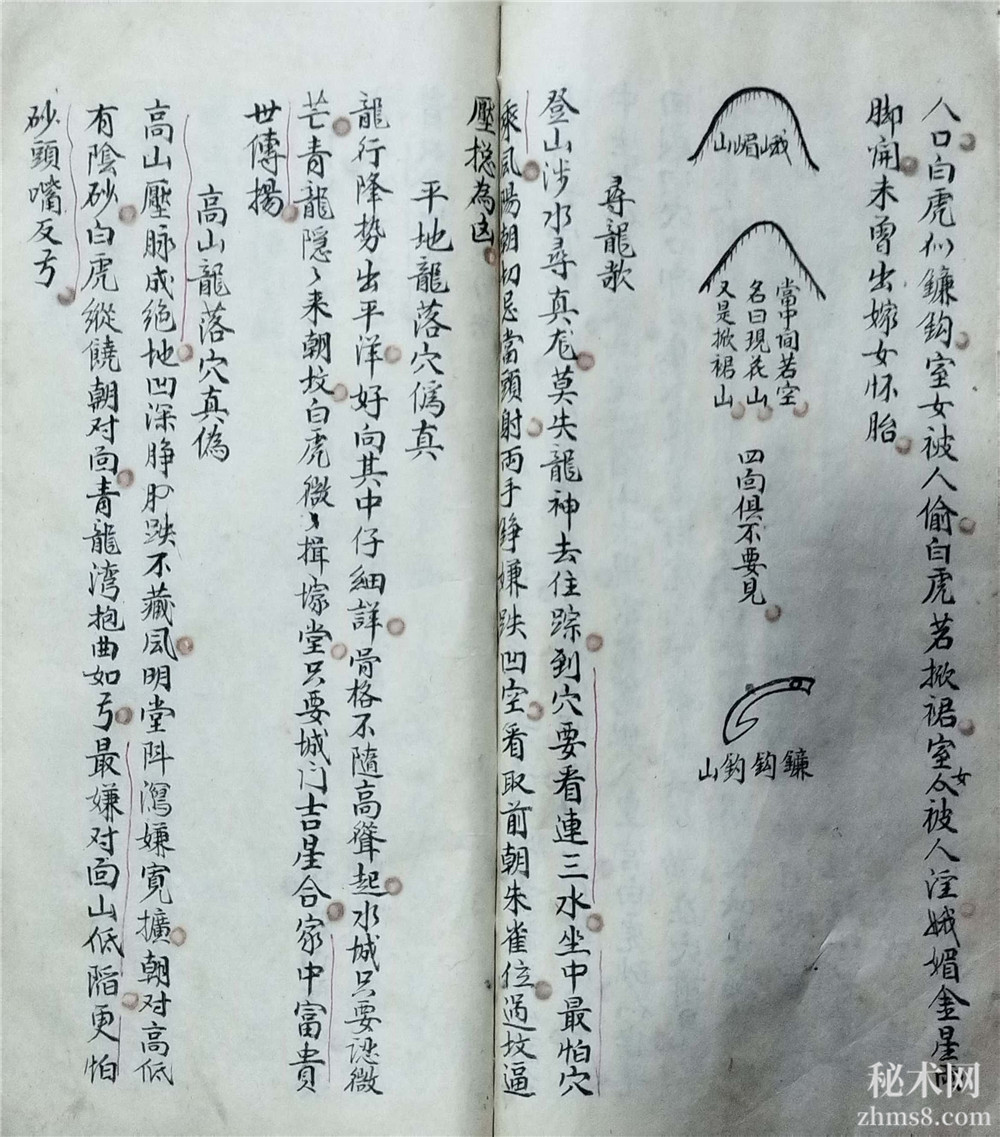 人口白虎似鐮鈎室女被人偷白虎若掀裙室女被人淫娥媚金星両
脚開未曾出嫁女怀胎
山媚峨
當中间若空
名曰現花山
又是掀裙山
四面俱不要見
山鈎鈎鐮
尋龍歌
登山涉水尋真龙莫失龍神去住踪到穴要看連三水坐中最怕穴
乘風陽朝切忌當頭射両手錚嫌跌凹空看取前朝朱雀位过坟逼
壓挖為凶
平地龍落穴偽真
龍行降势出平洋好向其中仔細詳骨格不隨高聳起水城只要认微
芒青龍隱〻来朝坟白虎微〻揖壕堂只要城门吉星合家中富貴
世傳揚
高山龍落穴真偽
高山壓脉成绝地凹深睁跌不藏风明堂阧瀉嫌寛擴朝对高低
有陰砂白虎縱饒朝对面青龍湾抱曲如弓最嫌对面山低陷更怕
砂頭嘴反弓
秘术网
zhms8.com